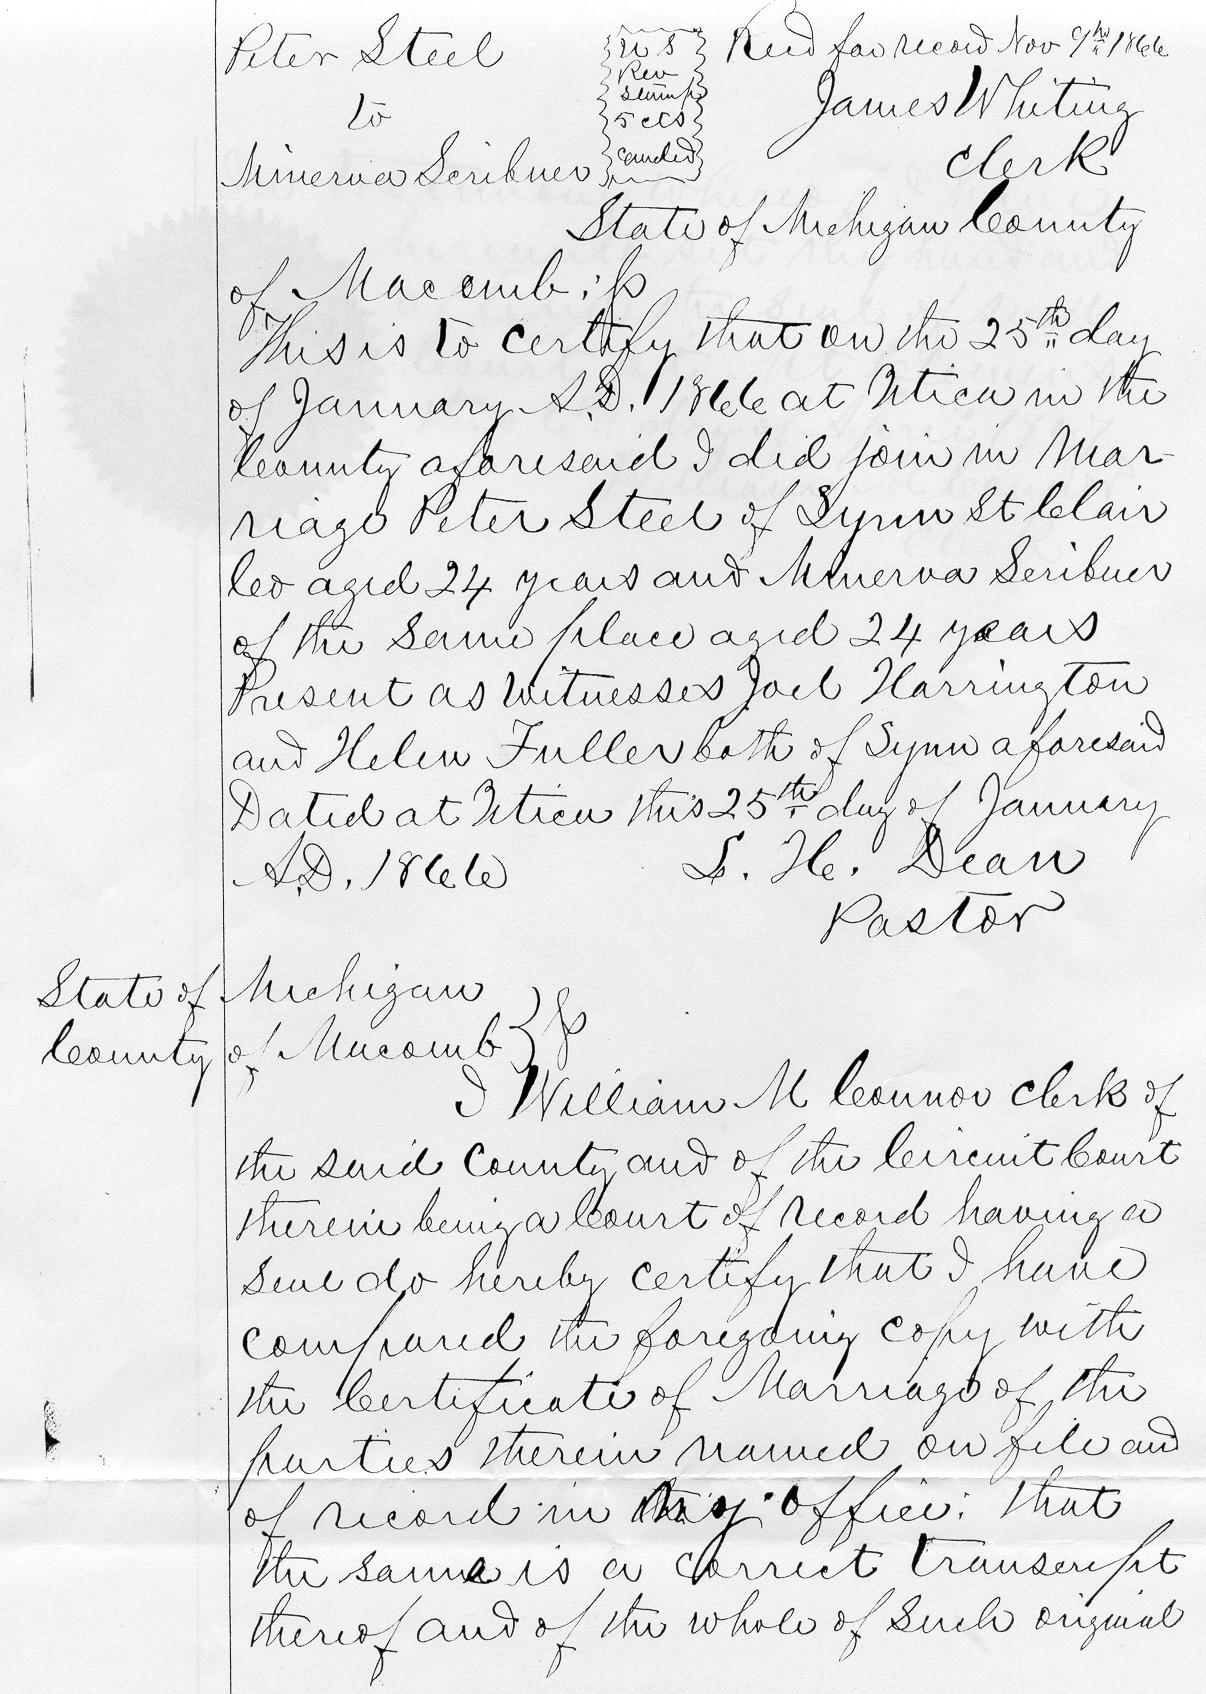 Peter Steel
to
Minerva Scribner
U S
Rev
Stamp
5 cts
canceled
Recd for record Nov 9th 1866
James Whiting
Clerk
State of Michigan County
of Macomb : ss
This is to certify that on the 25th day
of January A.D. 1866 at Utica in the
County aforesaid I did join in Mar-
riage Peter Steel of Lynn St Clair
Co aged 24 years and Minerva Scribner
of the same place aged 24 years
Present as Witnesses Joel Harrington
and Helen Fuller both of Lynn aforesaid
Dated at Utica this 25th day of January
A.D. 1866 S. H. Dean
Pastor
State of Michigan
County of Macomb } ss
I William M Connor Clerk of
the said County and of the Circuit Court
therein being a Court of record having a
seal do hereby certify that I have
compared the foregoing copy with
the Certificate of Marriage of the
parties therein named on file and
of record in my office: that
the same is a correct transcript
thereof and of the whole of such original